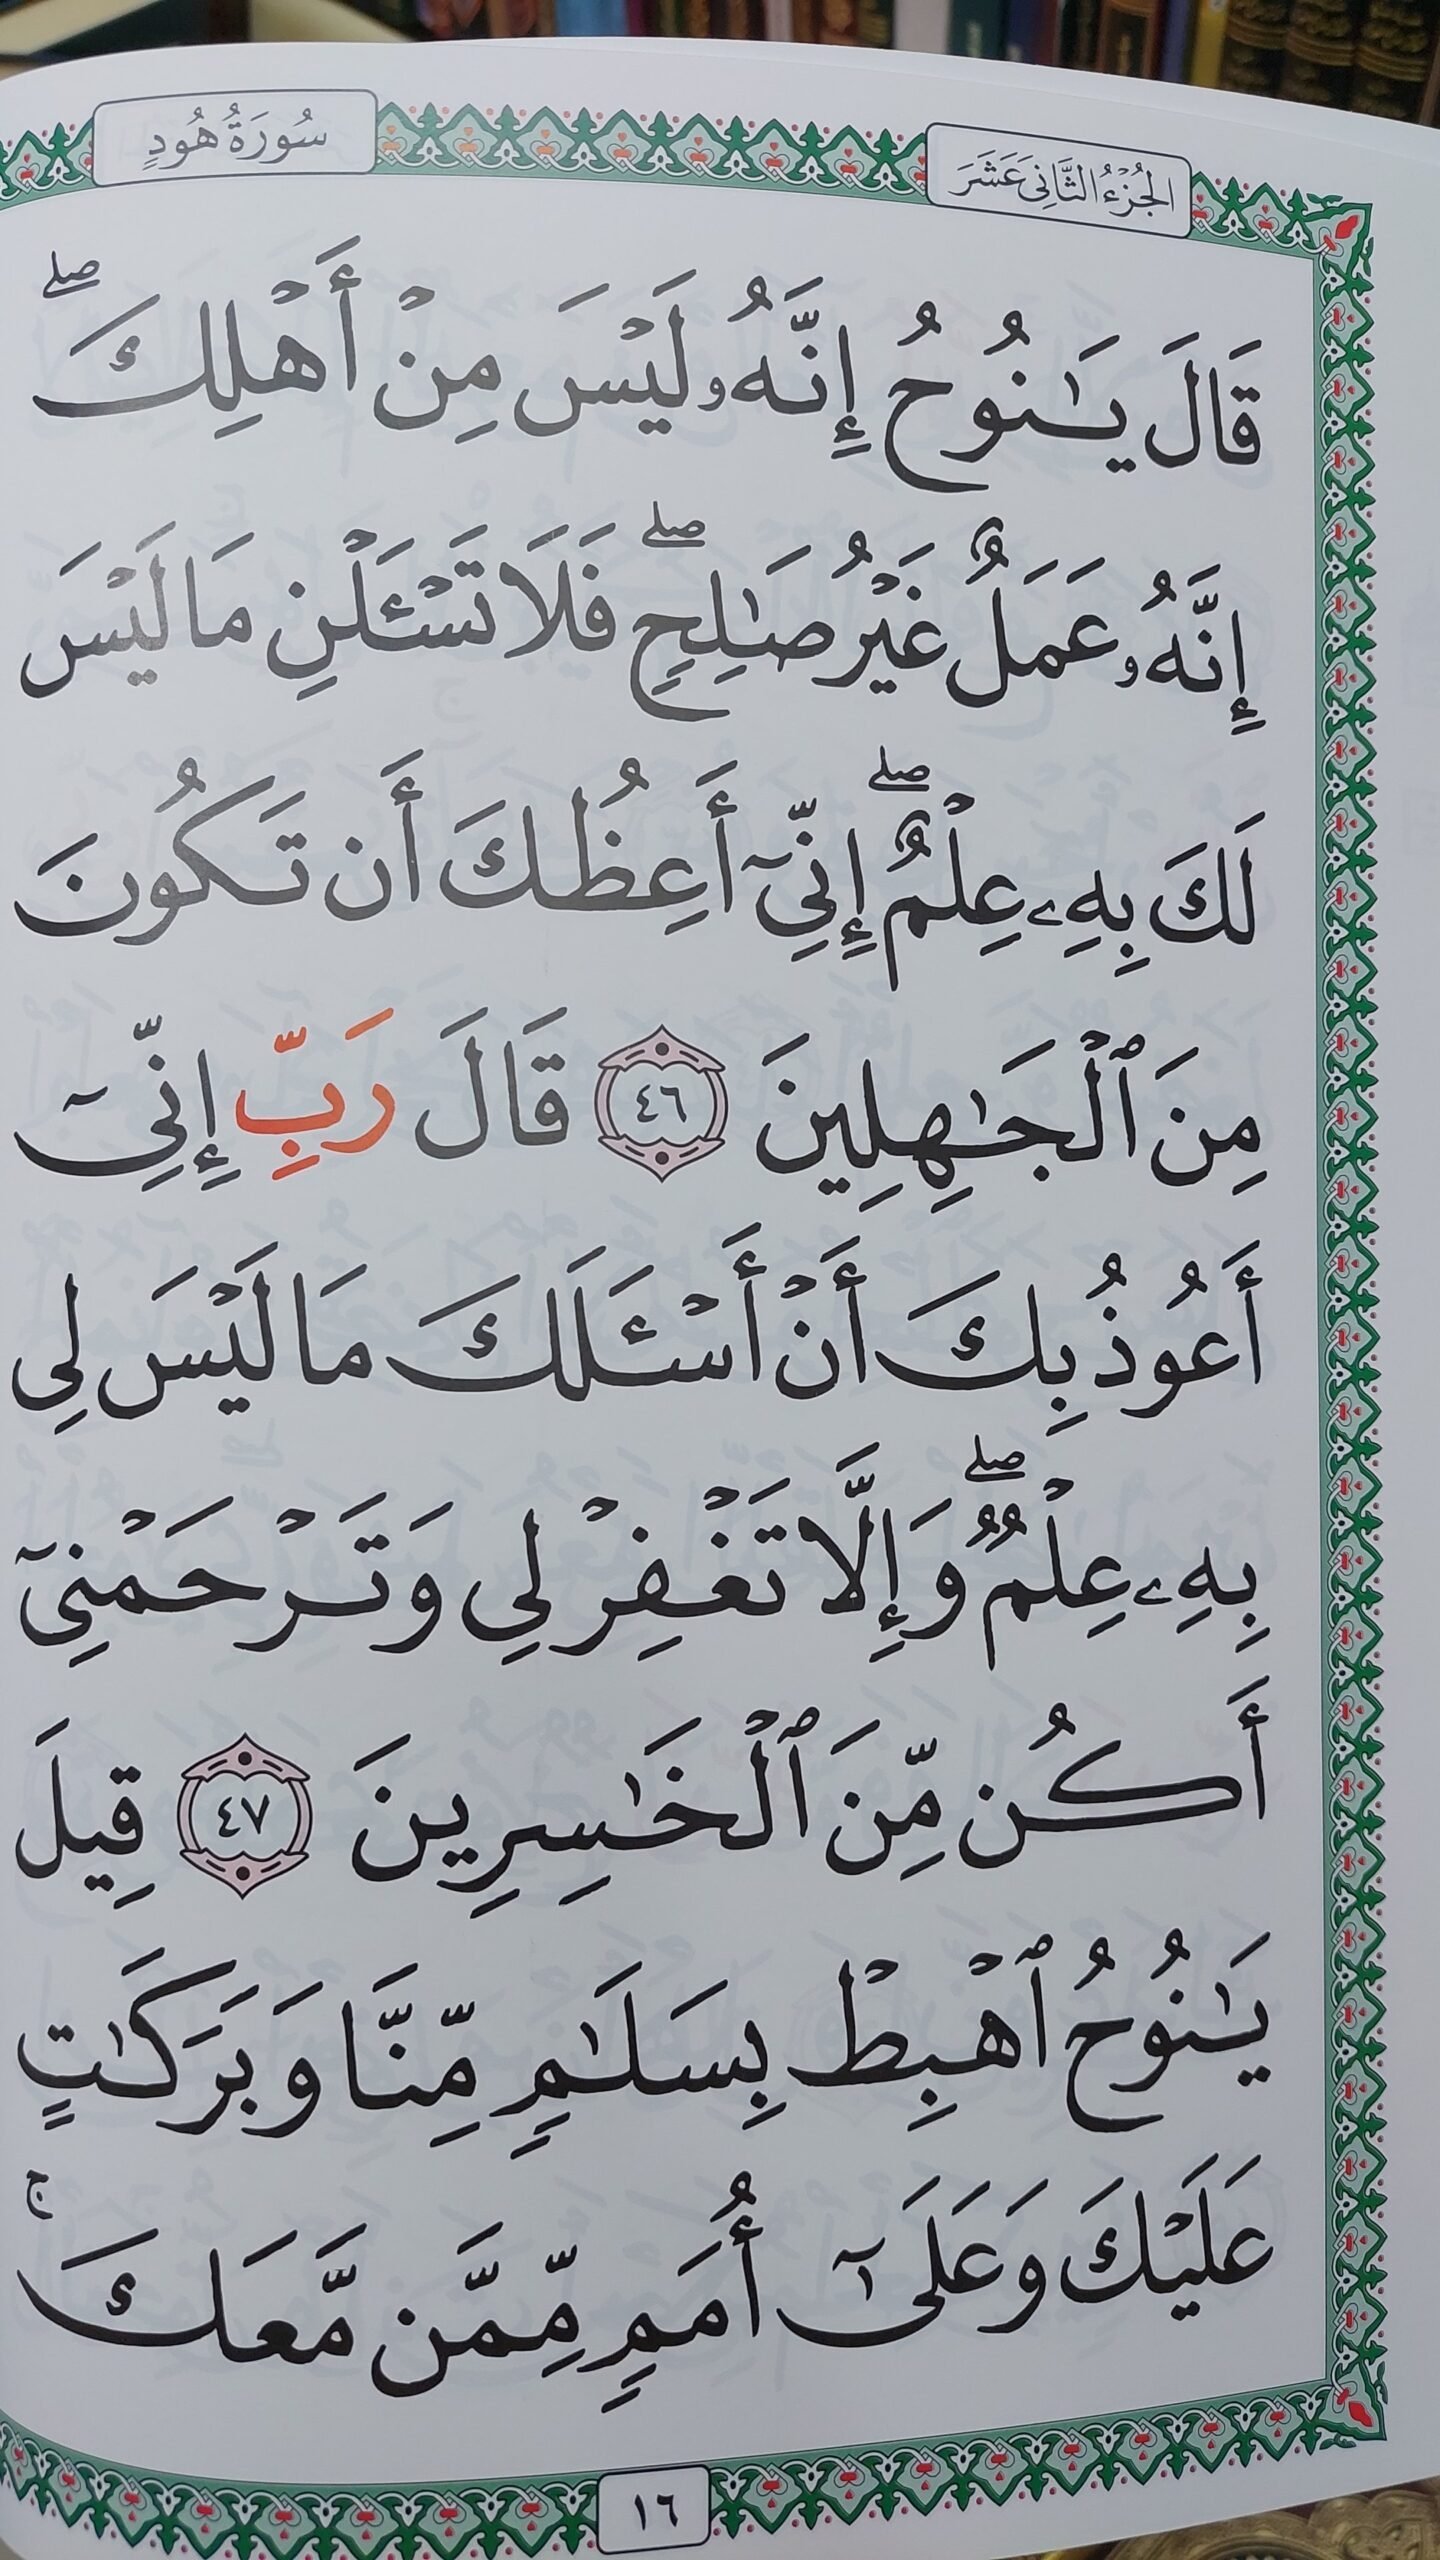 الجُزْءُ الثَّانِيَ عَشَرَ
سُورَةُ هُودٍ
قَالَ يَٰنُوحُ إِنَّهُۥ لَيْسَ مِنْ أَهْلِكَ ۖ
إِنَّهُۥ عَمَلٌ غَيْرُ صَٰلِحٍ ۖ فَلَا تَسْـَٔلْنِ مَا لَيْسَ
لَكَ بِهِۦ عِلْمٌ ۖ إِنِّىٓ أَعِظُكَ أَن تَكُونَ
مِنَ ٱلْجَٰهِلِينَ ٤٦ قَالَ رَبِّ إِنِّىٓ
أَعُوذُ بِكَ أَنْ أَسْـَٔلَكَ مَا لَيْسَ لِى
بِهِۦ عِلْمٌ ۖ وَإِلَّا تَغْفِرْ لِى وَتَرْحَمْنِىٓ
أَكُن مِّنَ ٱلْخَٰسِرِينَ ٤٧ قِيلَ
يَٰنُوحُ ٱهْبِطْ بِسَلَٰمٍ مِّنَّا وَبَرَكَٰتٍ
عَلَيْكَ وَعَلَىٰٓ أُمَمٍ مِّمَّن مَّعَكَ ۚ
١٦